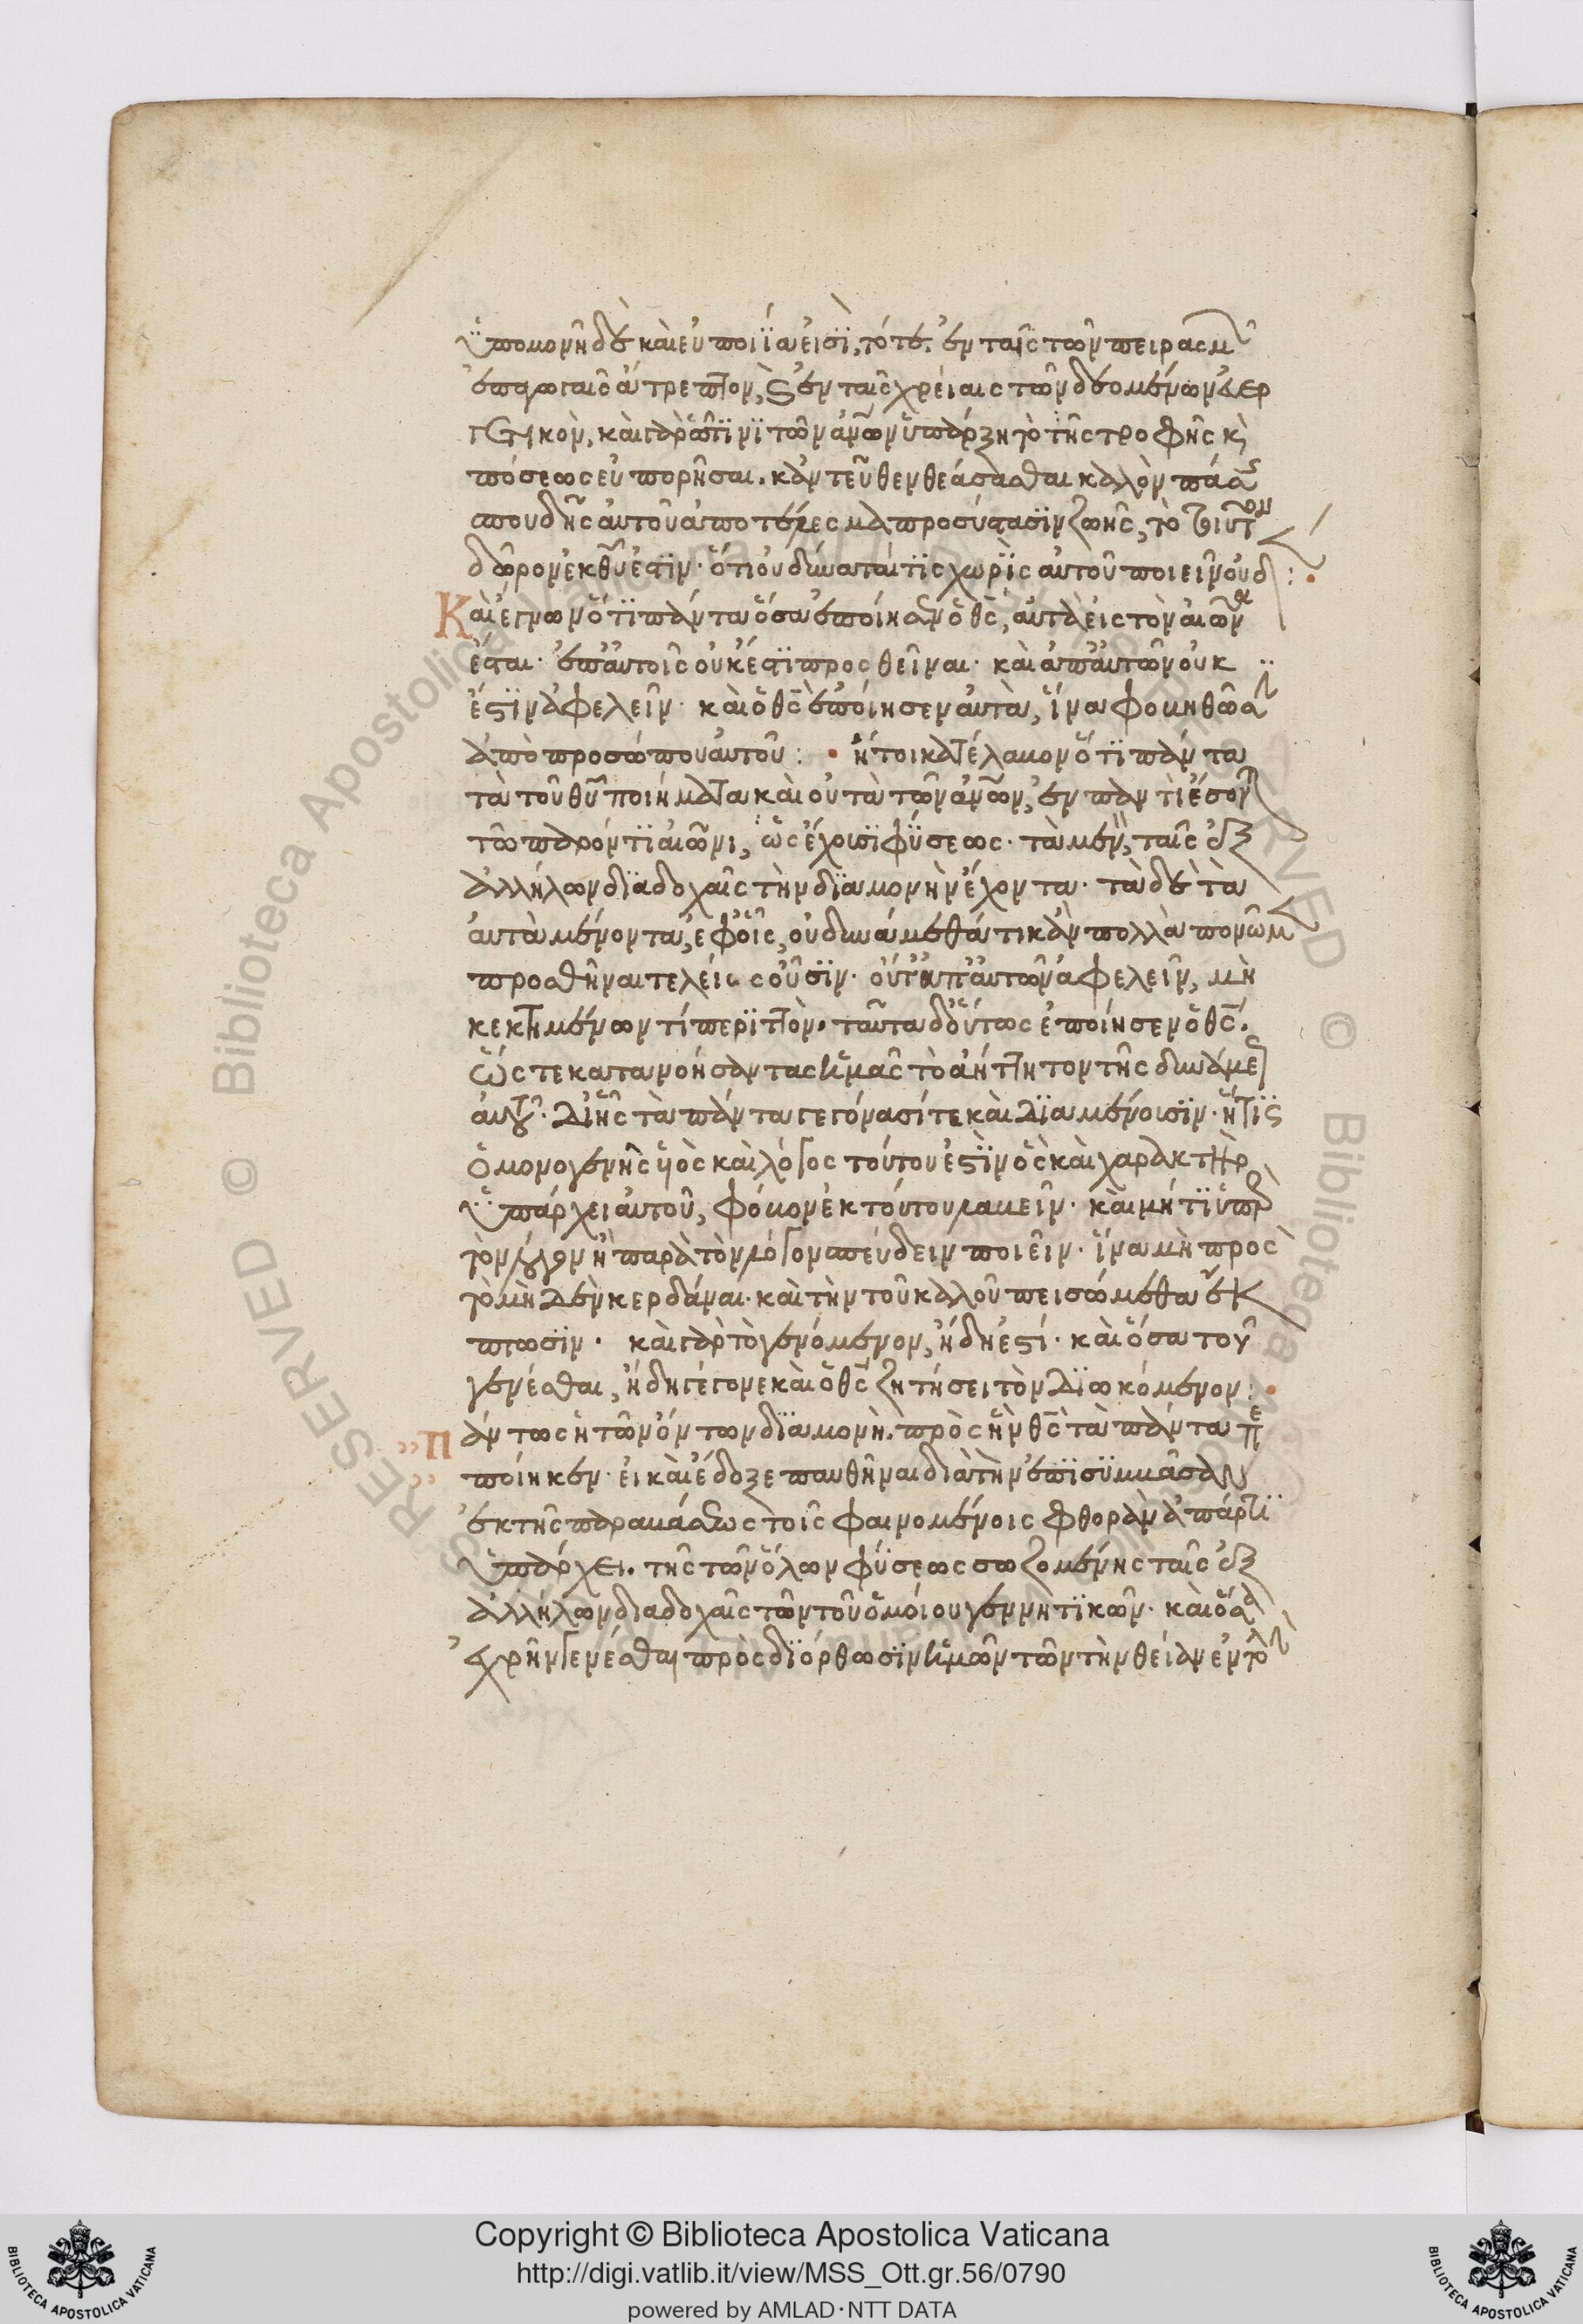 ὑπομονὴ δὲ καὶ εὐποιΐα εἰσὶ, τό τε ἐν ταῖς τῶν πειρασμ
ἐπαγωγαῖς ἄτρεπτον, καὶ ἐν ταῖς χρείαις τῶν δεομένων ἐνερ
γητικὸν, καὶ γὰρ ὥς τινι τῶν ἀνων ὑπάρξη τὸ τῆς τροφῆς καὶ
πόσεως εὐπορῆσαι. κἀντεῦθεν θεάσασθαι καλὸν πάσ
σπουδῆς αὐτοῦ ἀποτέλεσμα προσύστασιν ζωῆς, τὸ τοιοῦτον
δῶρον ἐκ θυ ἐστιν· ὅτι οὐ δύναταί τις χωρὶς αὐτοῦ ποιεῖν οὐδ :
Καὶ ἔγνων ὅτι πάντα ὅσα ἐποίησεν ὁ θς, αὐτὰ εἰς τὸν αἰῶνα
ἔσται· ἐπ' αὐτοῖς οὐκ ἔστι προσθεῖναι· καὶ ἀπ' αὐτῶν οὐκ
ἔστιν ἀφελεῖν· καὶ ὁ θς ἐποίησεν αὐτὰ, ἵνα φοβηθῶσι
ἀπὸ προσώπου αὐτοῦ : ἤτοι κατέλαβον ὅτι πάντα
τὰ τοῦ θυ ποιήματα καὶ οὐ τὰ τῶν ἀνων, ἐν παντὶ ἔσον
τῶ παρόντι αἰῶνι, ὡς ἔχουσι φύσεως· τὰ μὲν, ταῖς ἐξ
ἀλλήλων διαδοχαῖς τὴν διαμονὴν ἔχοντα· τὰ δὲ τὰ
αὐτὰ μένοντα, ἐφ' οἷς, οὐ δυνάμεθά τι κἂν πολλὰ πονῶμ
προσθῆναι τελείοις οὖσιν· οὔτ' ἀπ' αὐτῶν ἀφελεῖν, μὴ
κεκτημένων τί περιττὸν. ταῦτα δ' οὕτως ἐποίησεν ὁ θς.
ὥστε κατανοήσαντας ἡμᾶς τὸ ἀήττητον τῆς δυνάμε
αὐτοῦ. δι' ἧς τὰ πάντα γεγόνασί τε καὶ διαμένουσιν· ἥτις
ὁ μονογενὴς υἱὸς καὶ λόγος τούτου ἐστὶν ὃς καὶ χαρακτὴρ
ὑπάρχει αὐτοῦ, φόβον ἐκ τούτου λαβεῖν· καὶ μή τι ὑπὲρ
τὸν λόγον ἢ παρὰ τὸν λόγον σπεύδειν ποιεῖν. ἵνα μὴ πρὸς
τὸ μηδὲν κερδάναι. καὶ τὴν τοῦ καλοῦ πεισώμεθα ἔκ
πτωσιν. καὶ γὰρ τὸ γενόμενον, ἤδη ἐστί· καὶ ὅσα τοῦ
γενέσθαι, ἤδη γέγονε καὶ ὁ θς ζητήσει τὸν διωκόμενον :
Πάντως ἡ τῶν ὄντων διαμονὴ. πρὸς ἣν θς τὰ πάντα πε
ποίηκεν· εἰ καὶ ἔδοξε παυθῆναι διὰ τὴν ἐπισυμβᾶσαν
ἐκ τῆς παραβάσεως τοῖς φαινομένοις φθορὰν ἀπάρτι
ὑπάρχει. τῆς τῶν ὅλων φύσεως σωζομένης ταῖς ἐξ
ἀλλήλων διαδοχαῖς τῶν τοῦ ὁμοίου γεννητικῶν· καὶ ὅσα
ἐχρῆν γενέσθαι πρὸς διόρθωσιν ἡμῶν τῶν τὴν θείαν ἐντολ
Copyright © Biblioteca Apostolica Vaticana
http://digi.vatlib.it/view/MSS_Ott.gr.56/0790
powered by AMLAD·NTT DATA